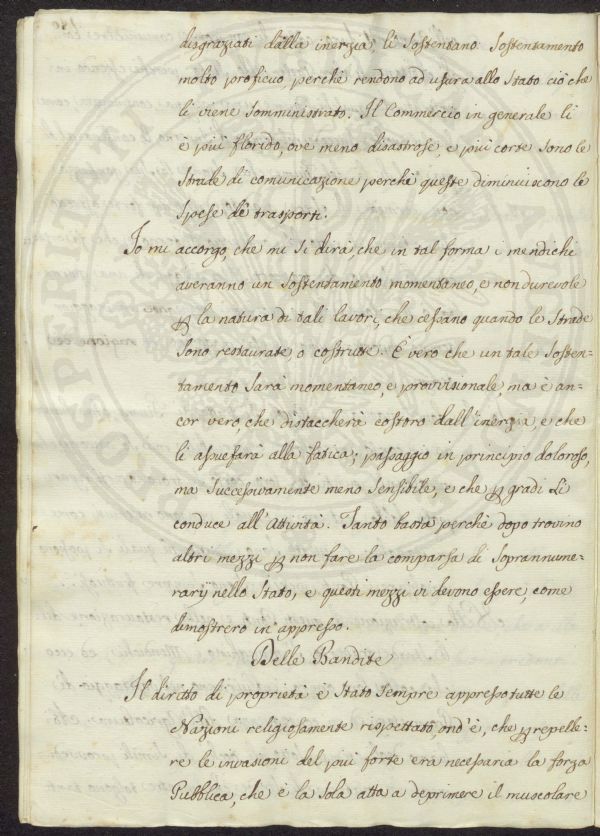 disgraziati dalla inerzia, li sostentano. Sostentamento
molto proficuo, perchè rendono ad usura allo Stato ciò che
li viene somministrato. Il Commercio in generale li
è più florido, ove meno disastrose, e più corte sono le
Strade di comunicazione perchè queste diminuiscono le
spese de trasporti.
Io mi accorgo, che mi si dirà, che in tal forma i mendichi
averanno un sostentamento momentaneo, e non durevole
ꝑ la natura di tali lavori, che cessano quando le Strade
sono restaurate, o costrutte. È vero che un tale sosten-
tamento sarà momentaneo, e provvisionale, ma è an-
cor vero, che distaccherà costoro dall'inerzia, e che
li assuefarà alla fatica; passaggio in principio doloroso,
ma successivamente meno sensibile, e che ꝑ gradi li
conduce all'Attività. Tanto basta perchè dopo trovino
altri mezzi ꝑ non fare la comparsa di soprannume-
rarij nello Stato, e questi mezzi vi devono essere, come
dimostrerò in appresso.
Delle Bandite
Il diritto di proprietà è stato sempre appresso tutte le
Nazioni religiosamente rispettato, ond'è, che ꝑ repelle-
re le invasioni del più forte era necessaria la forza
Pubblica, che è la sola atta a deprimere il muscolare